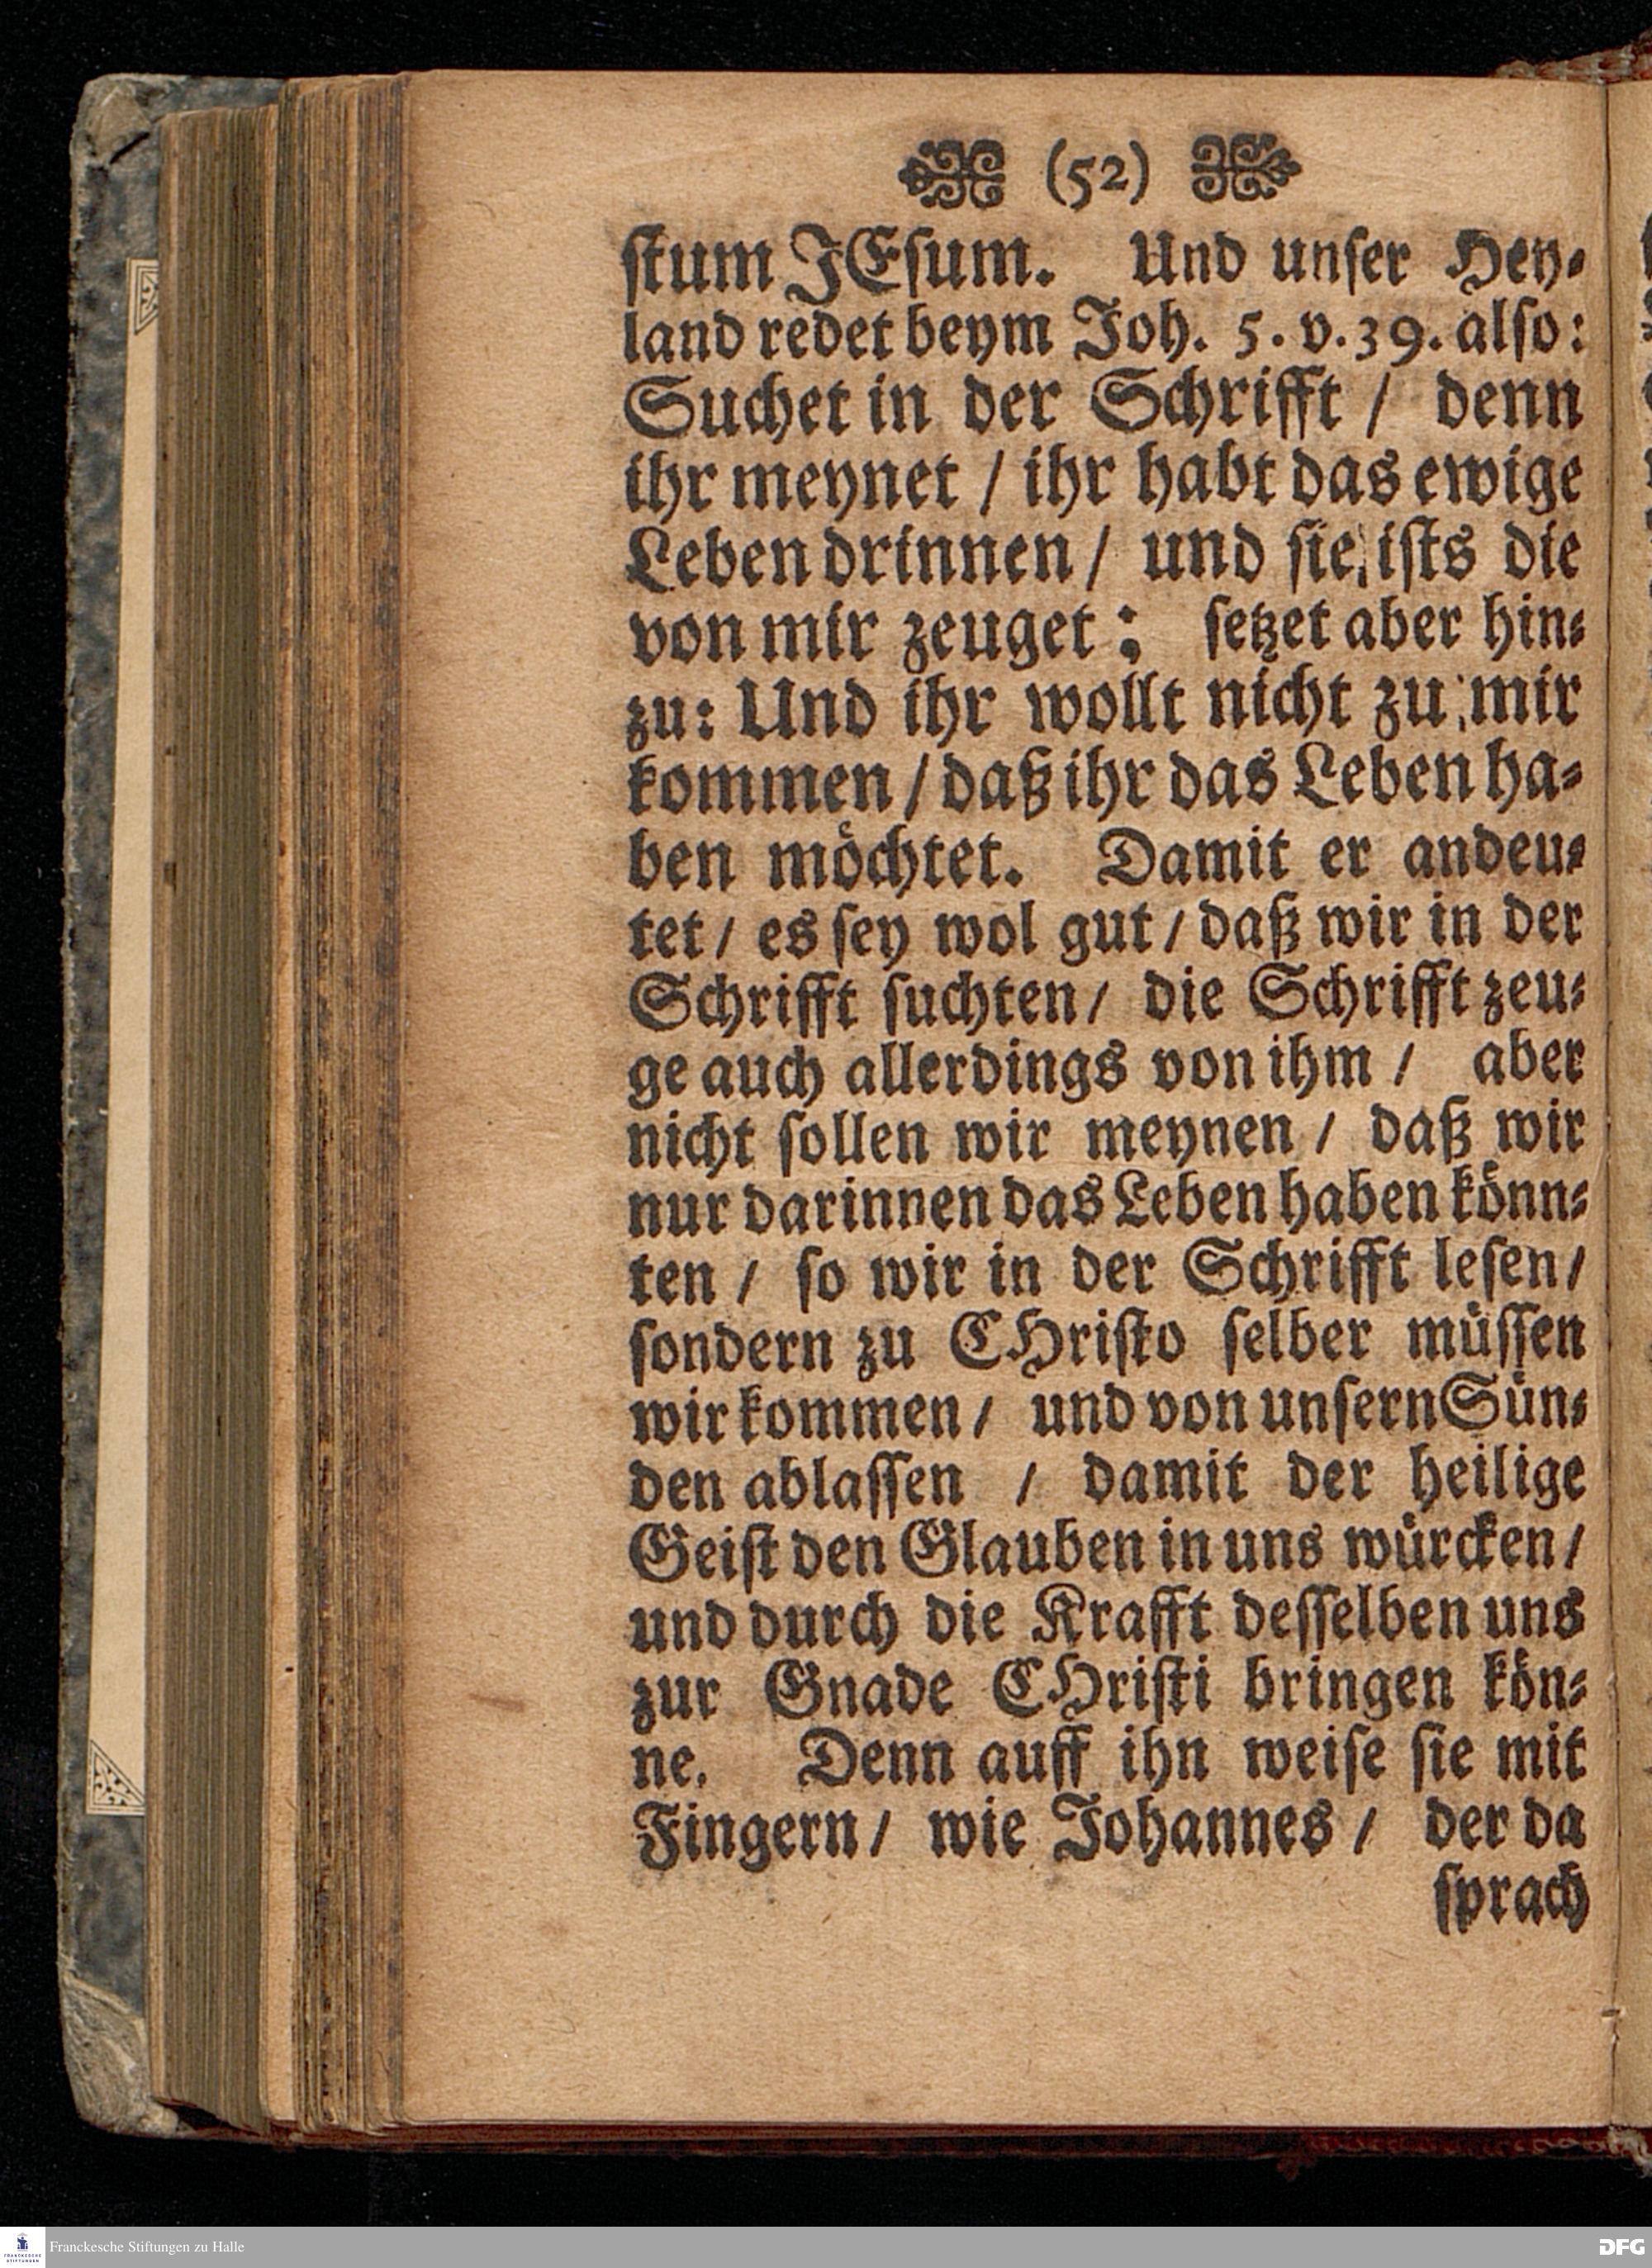 (52)
ſtum JEſum. Und unſer Hey-
land redet beym Joh. 5. v. 39. alſo:
Suchet in der Schrifft / denn
ihr meynet / ihr habt das ewige
Leben drinnen / und ſie iſts die
von mir zeuget: ſetzet aber hin-
zu: Und ihr wollt nicht zu mir
kommen / daß ihr das Leben ha-
ben moͤchtet. Damit er andeu-
tet / es ſey wol gut / daß wir in der
Schrifft ſuchten / die Schrifft zeu-
ge auch allerdings von ihm / aber
nicht ſollen wir meynen / daß wir
nur darinnen das Leben haben koͤnn-
ten / ſo wir in der Schrifft leſen /
ſondern zu CHriſto ſelber muͤſſen
wir kommen / und von unſern Suͤn-
den ablaſſen / damit der heilige
Geiſt den Glauben in uns wuͤrcken /
und durch die Krafft deſſelben uns
zur Gnade CHriſti bringen koͤn-
ne. Denn auff ihn weiſe ſie mit
Fingern / wie Johannes / der da
ſprach
FRANCKESCHE STIFTUNGEN
Franckesche Stiftungen zu Halle
DFG